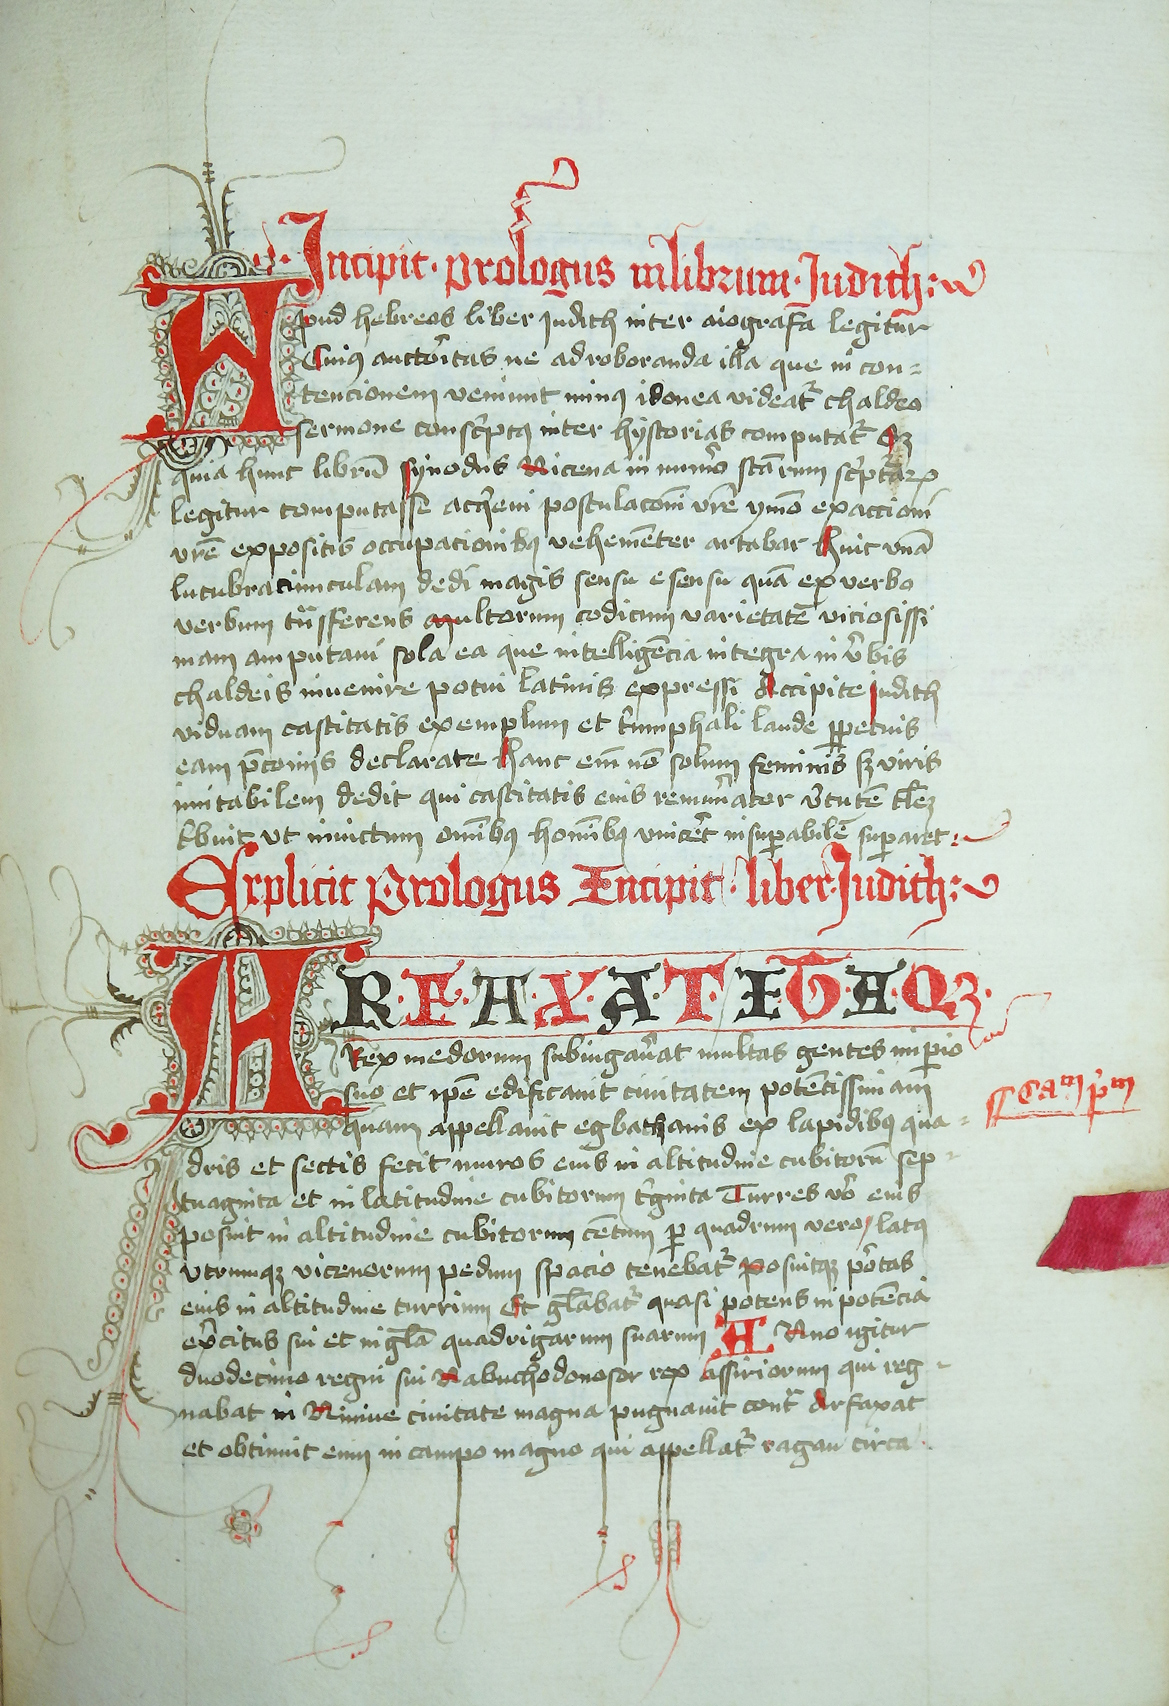 Incipit · prologus in librum · Judith :
Apud hebreos liber judith inter aiografa legitur
Cuiꝯ auctoͥtas ne ad roboranda illa que in con⸗
tencionem veniunt minꝯ idonea videat᷑ chaldeo
sermone conscͥptꝯ inter hystorias computat᷑ Sꝫ
quia hunc librū synodus Nicena in numͦo sc̄arum scͥptaꝝ
legitur computasse acq̄eui postulacōni vr̄e ymō exaccioni
vr̄e expositis occupacionibꝯ vehemēter artabar huic vnā
lucubraciunculam dedi magis sensu e sensu quā ex verbo
verbum trāsferens multorum codicum varietatē viciosissi
mam amputaui sola ea que intelligēcia integra in v̄bis
chaldeis inuenire potui latinis expressi Accipite judith
viduam castitatis exemplum et tͥumphali laude ꝑpetuis
eam p̄conijs declarate hanc eni̅ nō solum feminis sꝫ viris
imitabilem dedit qui castitatis eius remun̄ator v̄tutē tl̄eꝫ
tͥbuit vt inuictum om̄ibꝯ hom̄ibꝯ vincer̄t insuꝑabilē suꝑaret :
Explicit Prologus Incipit · liber · Judith :
ARFAXAT ITAQꝫ
Rex medorum subiugau̅at multas gentes imꝑio
suo et ip̄e edificauit ciuitatem potētissimam
quam appellauit egbathanis ex lapidibꝯ qua⸗
dris et sectis fecit muros eius in altitudine cubitorū sep⸗
tuaginta et in latitudine cubitorum tͥginta Turres v̄o eius
posuit in altitudine cubitorum cētum ꝑ quadrum vero latꝯ
vtrumqꝫ vicenorum pedum spacio tenebat᷑ Posuitqꝫ portas
eius in altitudine turrium Et gl̄abat᷑ quasi potens in potēcia
ex̄citus sui et in gl̄a quadrigarum suarum ANno igitur
duodecimo regni sui Nabuchodonosor rex assiriorum qui reg⸗
nabat in Niniue ciuitate magna pugnauit contͣ Arfaxat
et obtinuit eum in campo magno qui appellat᷑ ragau circa
Caᵐ pͥᵐ